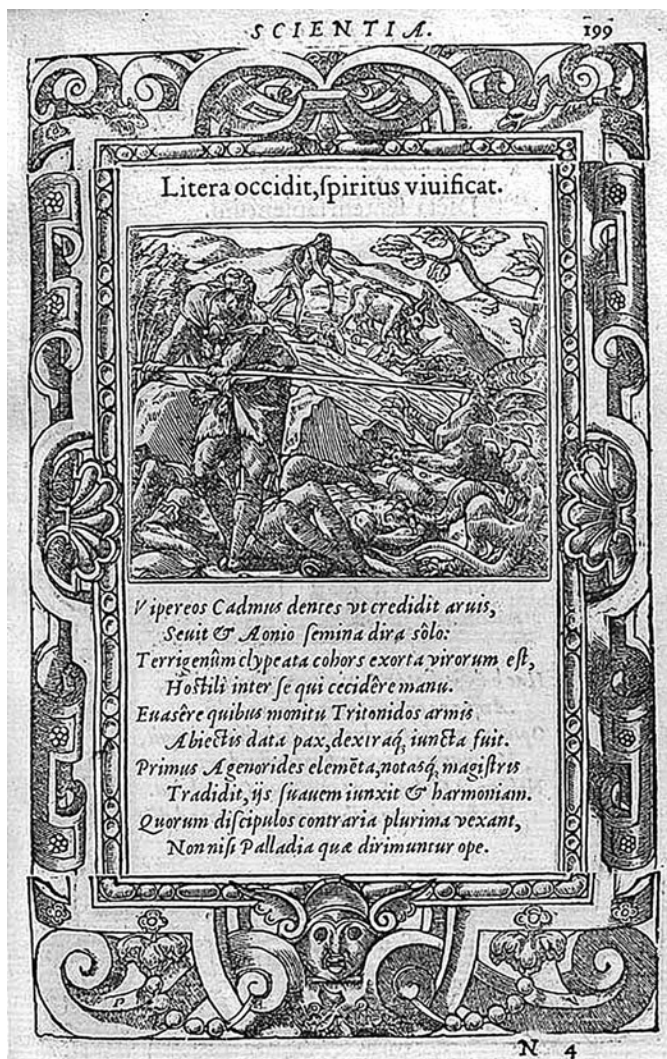 SCIENTIA. 199
Litera occidit, ſpiritus viuificat.
Vipereos Cadmus dentes vt credidit aruis,
Seuit & Aonio ſemina dira sôlo:
Terrigenûm clypeata cohors exorta virorum eſt,
Hoſtili inter ſe qui cecidêre manu.
Euasêre quibus monitu Tritonidos armis
Abiectis data pax, dextraq́; iuncta fuit.
Primus Agenorides elemēta, notasq́; magiſtris
Tradidit, ijs ſuauem iunxit & harmoniam.
Quorum diſcipulos contraria plurima vexant,
Non niſi Palladia quæ dirimuntur ope.
N 4